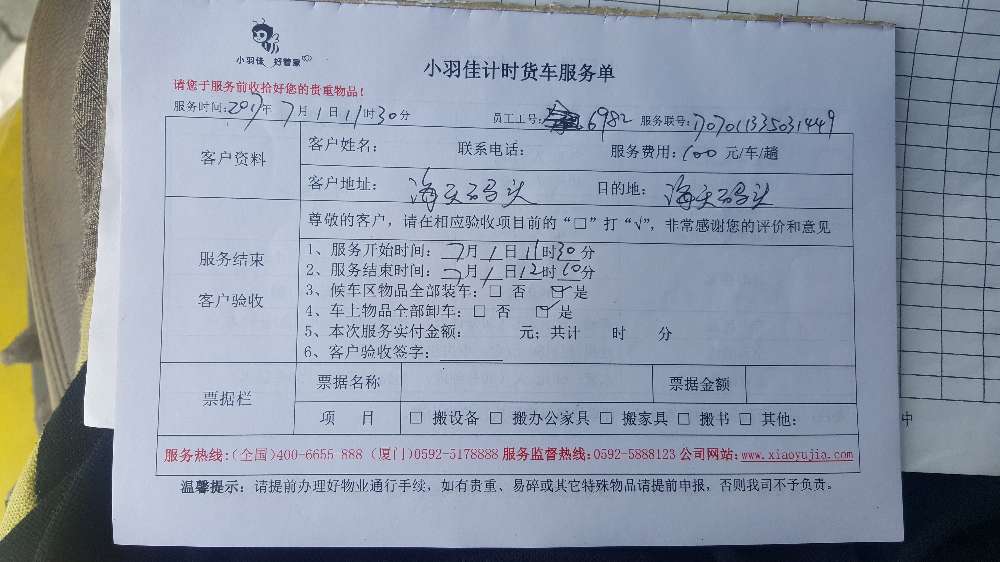 小羽佳 好管家
小羽佳计时货车服务单
请您于服务前收拾好您的贵重物品!
服务时间:2017年7月1日11时30分 员工工号: 6982 服务联号:1707011335031449
客户资料
客户姓名: 联系电话: 服务费用:600 元/车/趟
客户地址: 海天码头 目的地: 海天码头
服务结束
客户验收
尊敬的客户，请在相应验收项目前的“□”打“√”，非常感谢您的评价和意见
1、服务开始时间:7月1日11时30分
2、服务结束时间:7月1日12时60分
3、候车区物品全部装车:□ 否 ☑是
4、车上物品全部卸车:□ 否 ☑是
5、本次服务实付金额: 元; 共计 时 分
6、客户验收签字:
票据栏
票据名称 票据金额
项 目 □ 搬设备 □ 搬办公家具 □ 搬家具 □ 搬书 □ 其他:
服务热线:(全国)400-6655 888 (厦门)0592-5178888 服务监督热线:0592-5888123 公司网站:www.xiaoyujia.com
温馨提示: 请提前办理好物业通行手续，如有贵重、易碎或其它特殊物品请提前申报，否则我司不予负责。
中